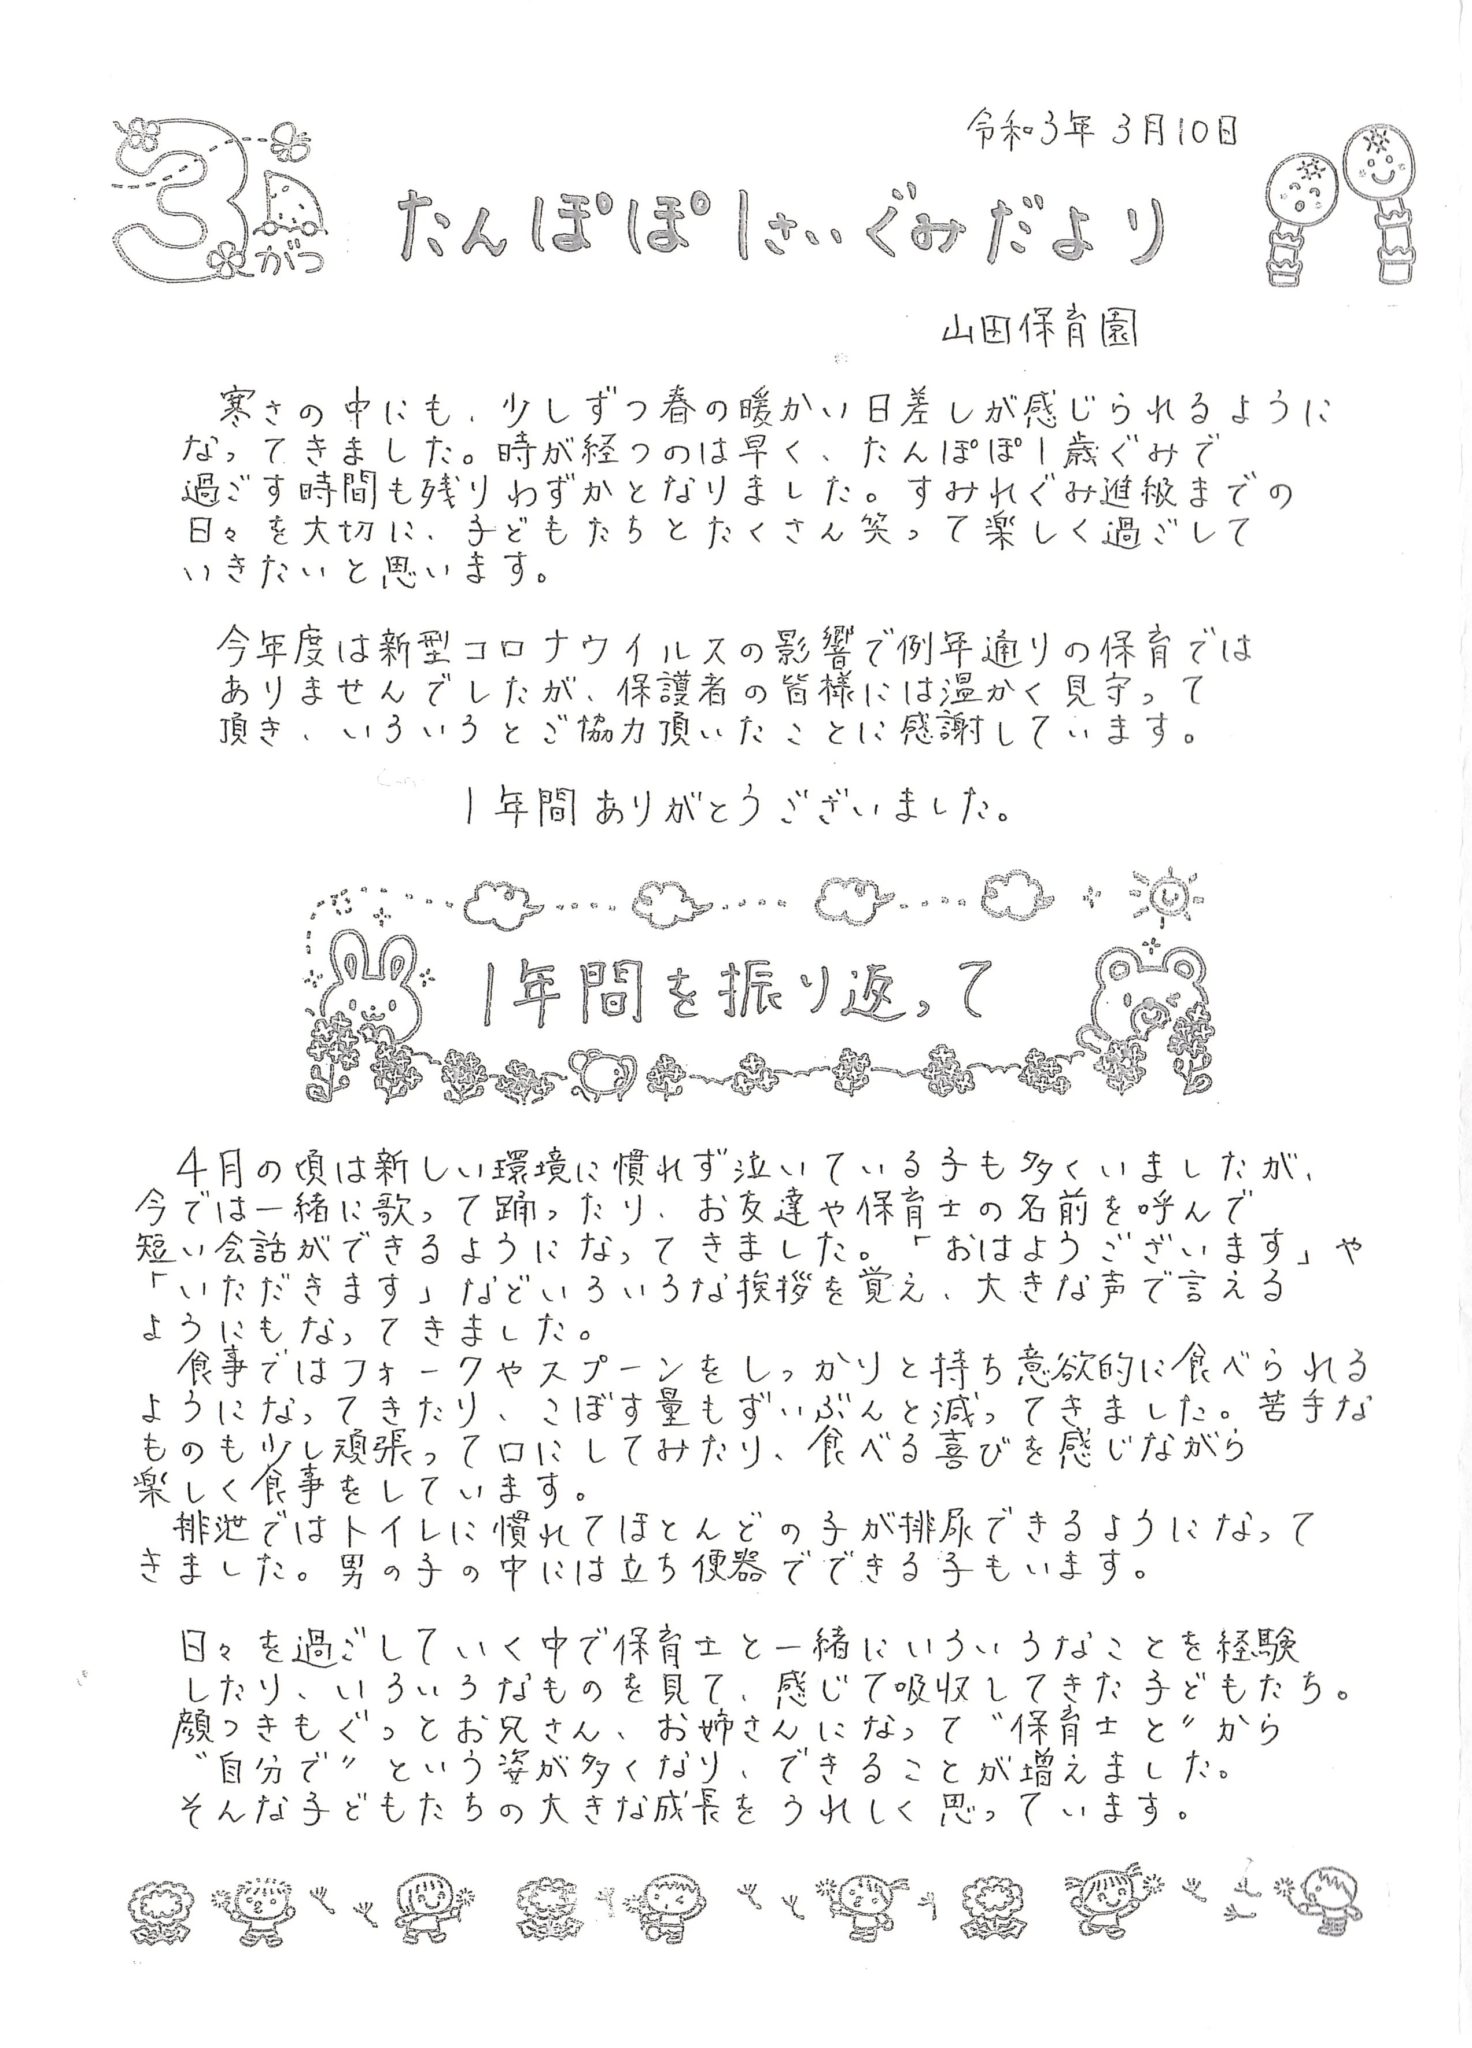 令和3年3月10日
3がつ
たんぽぽ1さいぐみだより
山田保育園
寒さの中にも、少しずつ春の暖かい日差しが感じられるように
なってきました。時が経つのは早く、たんぽぽ1歳ぐみで
過ごす時間も残りわずかとなりました。すみれぐみ進級までの
日々を大切に、子どもたちとたくさん笑って楽しく過ごして
いきたいと思います。
今年度は新型コロナウイルスの影響で例年通りの保育では
ありませんでしたが、保護者の皆様には温かく見守って
頂き、いろいろとご協力頂いたことに感謝しています。
1年間ありがとうございました。
1年間を振り返って
4月の頃は新しい環境に慣れず泣いている子も多くいましたが、
今では一緒に歌って踊ったり、お友達や保育士の名前を呼んで
短い会話ができるようになってきました。「おはようございます」や
「いただきます」などいろいろな挨拶を覚え、大きな声で言える
ようにもなってきました。
食事ではフォークやスプーンをしっかりと持ち意欲的に食べられる
ようになってきたり、こぼす量もずいぶんと減ってきました。苦手な
ものも少し頑張って口にしてみたり、食べる喜びを感じながら
楽しく食事をしています。
排泄ではトイレに慣れてほとんどの子が排尿できるようになって
きました。男の子の中には立ち便器でできる子もいます。
日々を過ごしていく中で保育士と一緒にいろいろなことを経験
したり、いろいろなものを見て、感じて吸収してきた子どもたち。
顔つきもぐっとお兄さん、お姉さんになって〝保育士と〟から
〝自分で〟という姿が多くなり、できることが増えました。
そんな子どもたちの大きな成長をうれしく思っています。